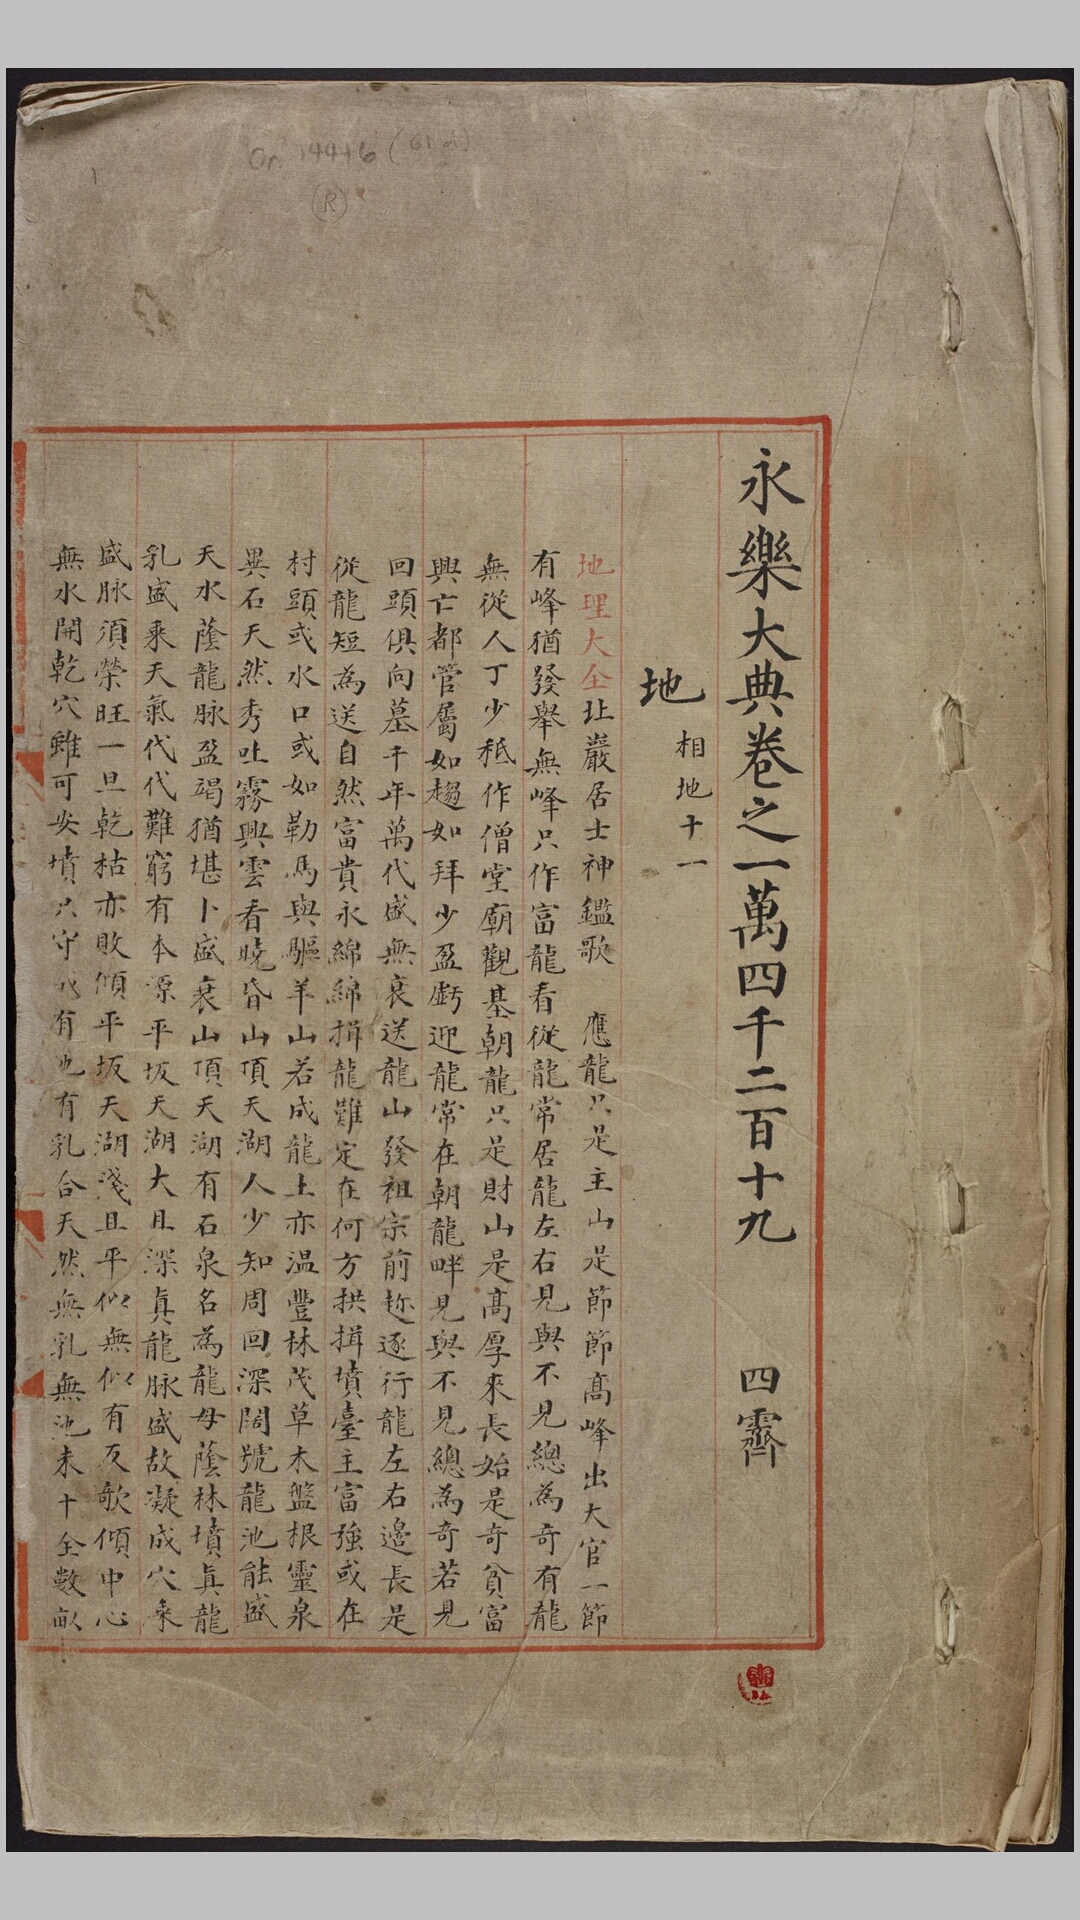 永樂大典卷之一萬四千二百十九 四霽
地 相地十一
地理大全 㘩巖居士神鑑歌 應龍只是主山是節節髙峰出大官一節
有峰猶發舉無峰只作富龍看從龍常居龍左右見與不見總為奇有龍
無從人丁少秪作僧堂廟觀基朝龍只是財山是髙厚來長始是奇貧富
興亡都管屬如趨如拜少盈虧迎龍常在朝龍畔見與不見總為奇若見
回頭俱向墓千年萬代盛無衰送龍山發祖宗前趂逐行龍左右邉長是
從龍短為送自然富貴永綿綿揖龍難定在何方拱揖墳臺主富強或在
村頭或水口或如勒馬與驅羊山若成龍土亦温豐林茂草木盤根靈泉
異石天然秀吐霧興雲看曉昏山頂天湖人少知周回深闊號龍池能盛
天水䕃龍脉盈竭猶堪卜盛衰山頂天湖有石泉名為龍母䕃林墳真龍
乳盛乘天氣代代難窮有本源平坂天湖大且深真龍脉盛故凝成穴乘
盛脉須榮旺一旦乾枯亦敗傾平坂天湖淺且平似無似有反欹傾中心
無水開乾穴雖可安墳只守成有池有乳合天然無乳無池未十全數畝
Or. 14446 (61 a)
R
1